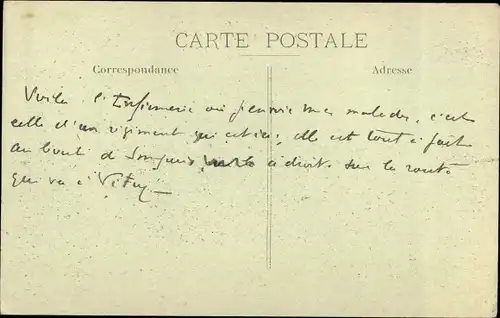 CARTE POSTALE
Correspondance
Adresse
Voilà l'Infirmerie où j'envoie mes malades, c'est
celle d'un régiment qui est ici, elle est tout à fait
au bout de à droite sur la route
qui va à Vitry.